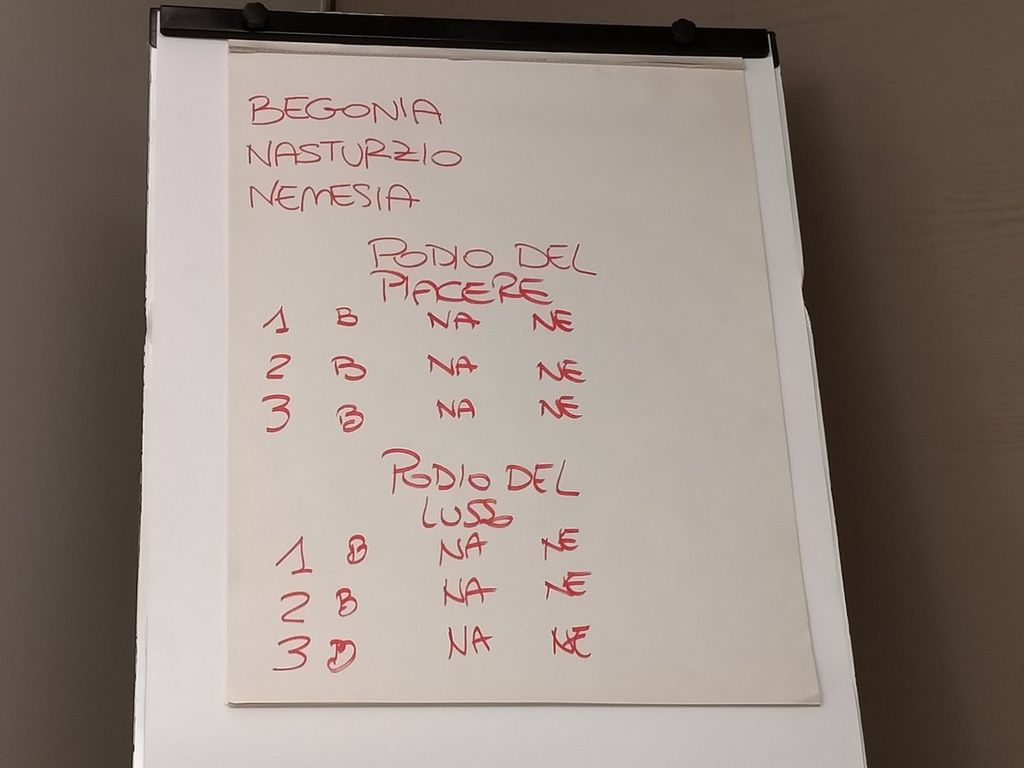 BEGONIA
NASTURZIO
NEMESIA
PODIO DEL
PIACERE
1 B NA NE
2 B NA NE
3 B NA NE
PODIO DEL
LUSSO
1 B NA NE
2 B NA NE
3 B NA NE